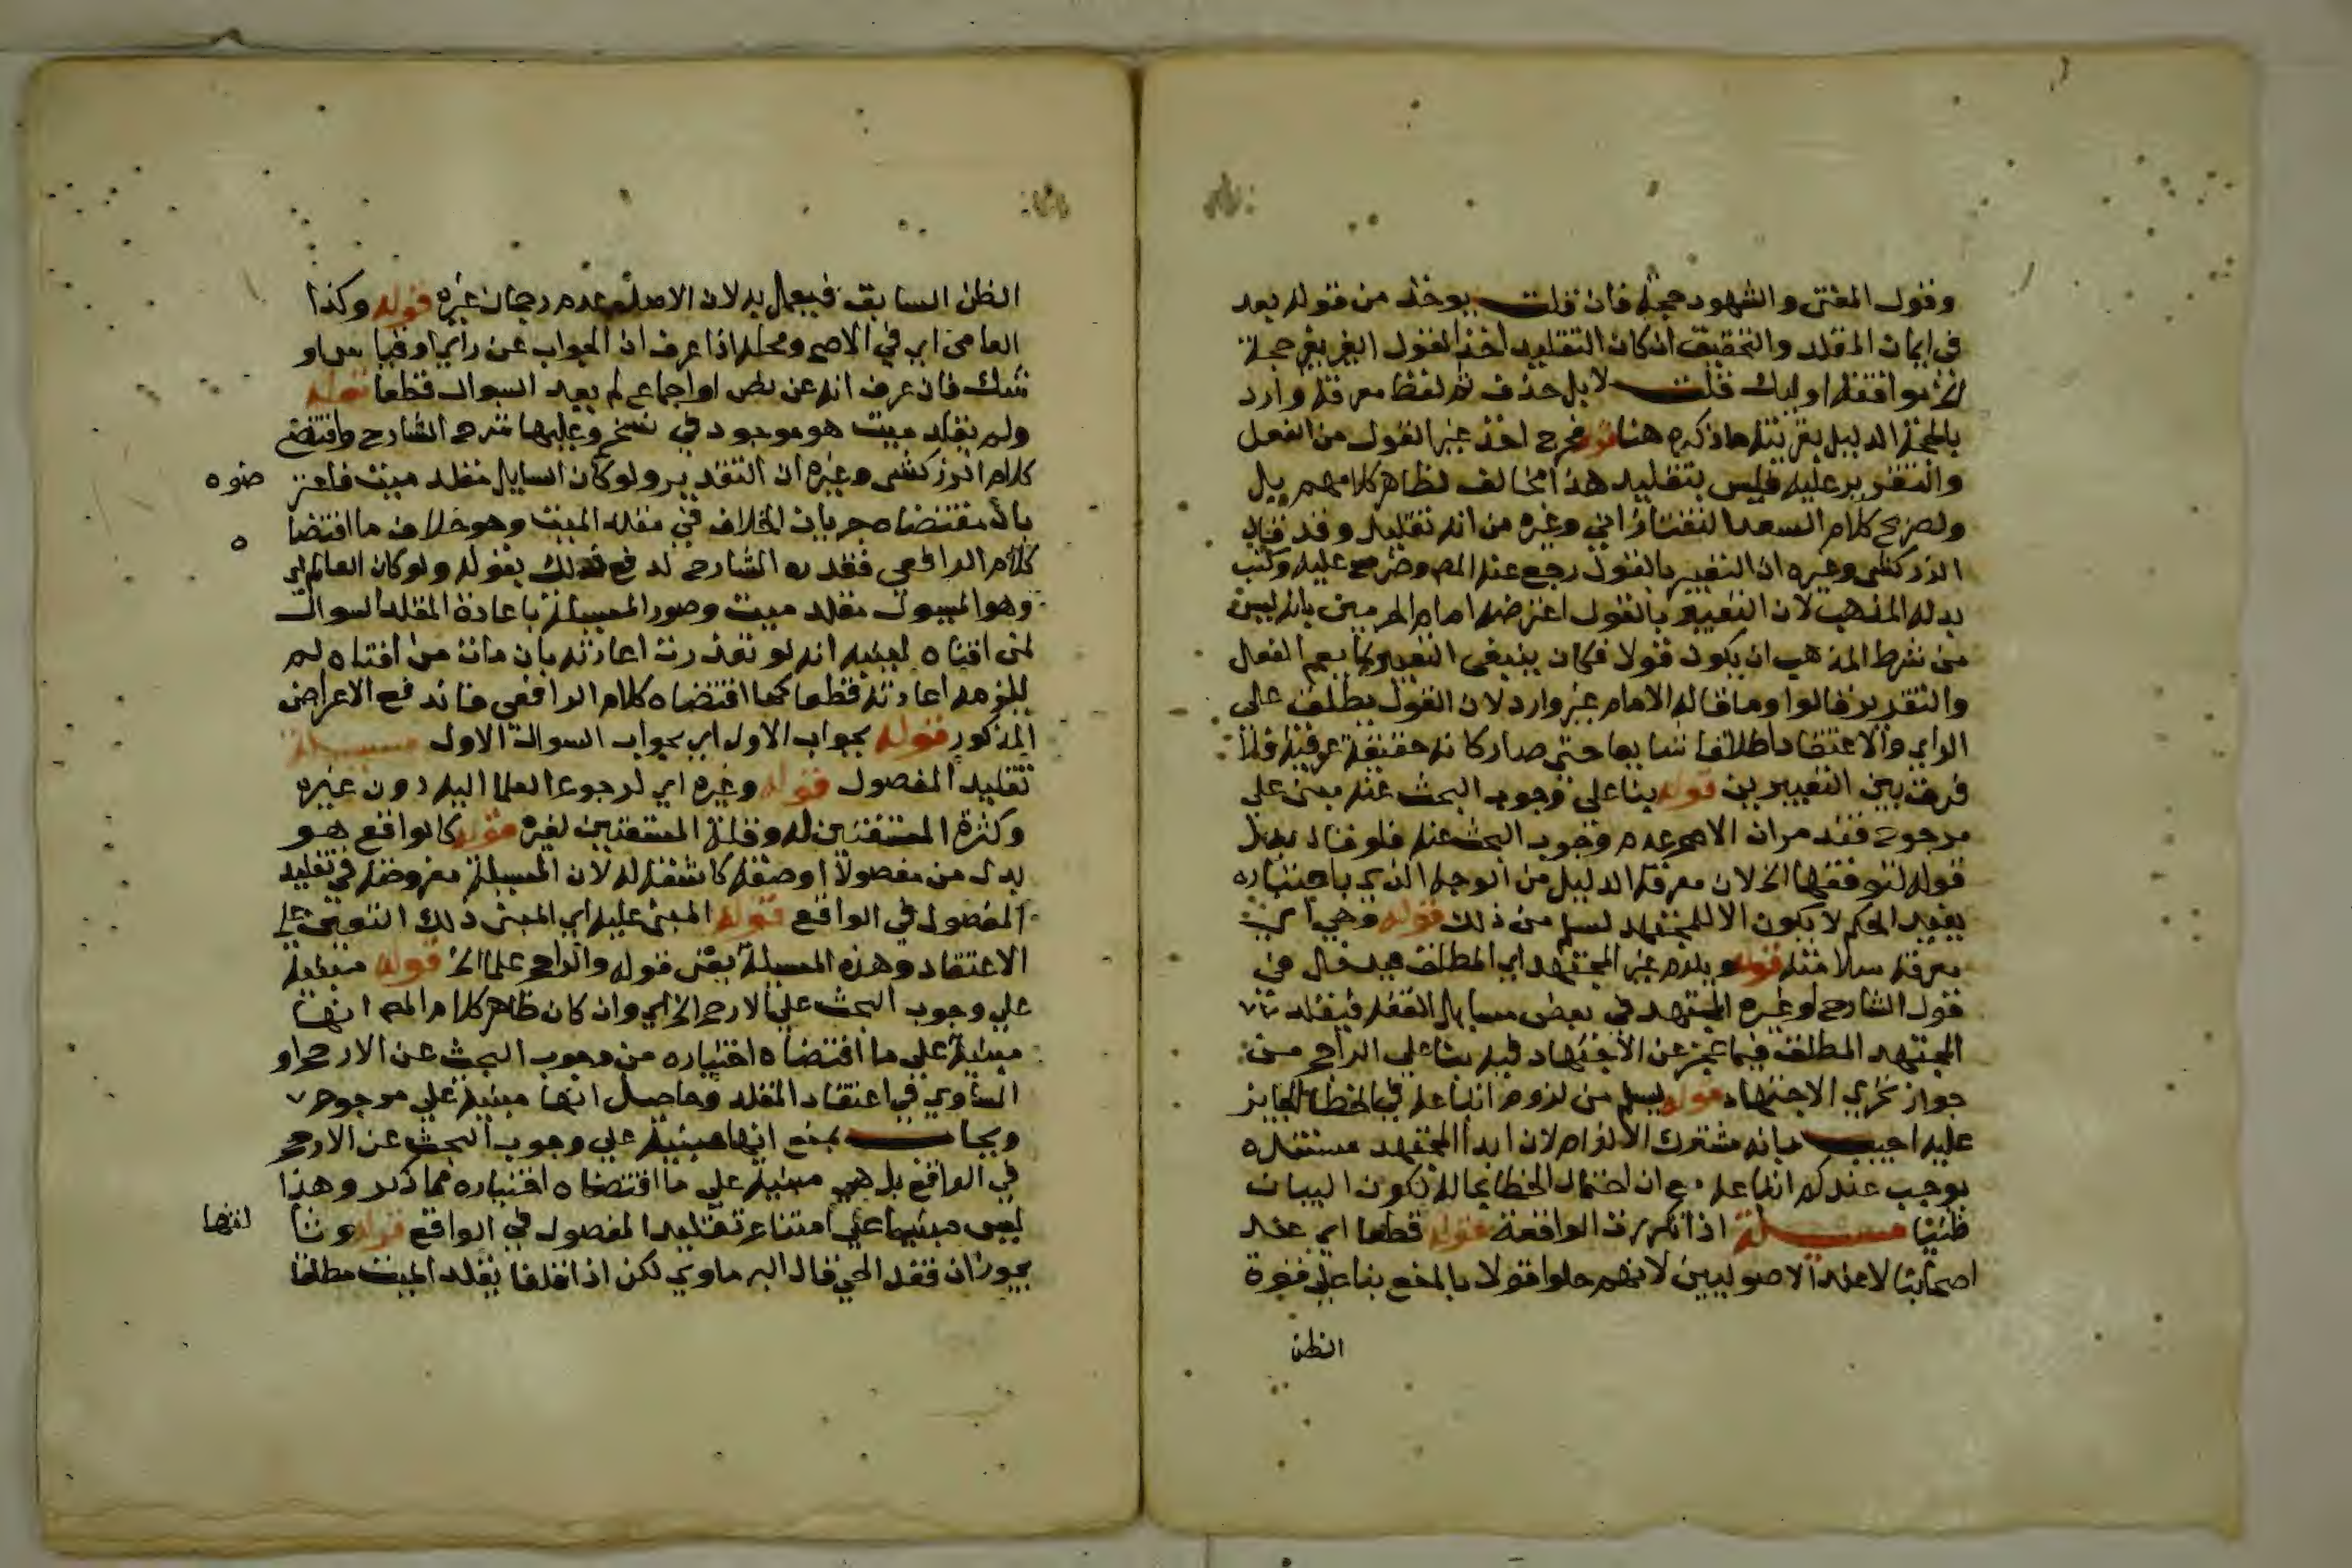 وقول المفتى والشهود حجة فان قلت يوخذ من قوله بعد
فى ايمان المقلد والتحقيق ان كان التقليد اخذ القول الغير بغير حجة
الخ موافقة اوليك قلت لا بل حذف ثم لفظ معرفة وارد
بالحجة الدليل بقرينة ما ذكره هنا قوله فخرج اخذ غير القول من الفعل
والتقرير عليه فليس بتقليد هذا مخالف لظاهر كلامهم بل
ولصريح كلام السعد التفتازاني وغيره من انه تقليد وقد قال
الزركشى وغيره ان التعبير بالقول رجع عنه المص وضرح عليه وكتب
بدله المذهب لان التعبير بالقول اعترضه امام الحرمين بانه ليس
من شرط المذهب ان يكون قولا فكان ينبغى التعبير بما يعم الفعل
والتقرير قالوا وما قاله الامام غير وارد لان القول يطلق على
الراي والاعتقاد اطلاقا شايعا حتى صار كانه حقيقة عرفية فلا
فرق بين التعبيرين قوله بنا على وجوب البحث عنه مبنى على
مرجوح فقد مر ان الاصح عدم وجوب البحث عنه فلو قال بدل
قوله لتوقفها الخ لان معرفة الدليل من الوجه الذي باعتباره
يفيد الحكم لا يكون الا للمجتهد لسلم من ذلك قوله وهي اي
معرفة سلامته قوله ويلزم غير المجتهد اي المطلق فيدخل فى
قول الشارح او غيره المجتهد في بعض مسايل الفقه فيقلد
المجتهد المطلق فيما عجز عن الاجتهاد فيه بنا علي الراجح من
جواز تجزي الاجتهاد قوله ليسلم من لزوم اتباعه في الخطا الجايز
عليه اجيب بانه مشترك الالزام لان ابدا المجتهد مستنده
يوجب عندكم اتباعه مع ان احتمال الخطا بحاله لكون البيان
ظنيا مسئلة اذا تكررت الواقعة قوله قطعا اي عند
اصحابنا لا عند الاصوليين لانهم حكوا قولا بالمنع بنا على قوة
الظن
الظن السابق فيعمل به لان الاصل عدم رجحان غيره قوله وكذا
العامى اي في الاصح ومحله اذا عرف ان الجواب عن راي او قياس او
شك فان عرف انه عن نص او اجماع لم يعد السوال قطعا قوله
ولم يقلد ميت هو موجود في نسخ وعليها شرح الشارح واقتضى
كلام الزركشى وغيره ان التقدير ولو كان السايل مقلد ميت فاعتر
ضوه
بان مقتضاه جريان الخلاف في مقلد الميت وهو خلاف ما اقتضا
ه
كلام الرافعى فقدره الشارح لدفع ذلك بقوله ولو كان العالم اي
وهو المسيول مقلد ميت وصور المسيلة باعادة المقلد السوال
لمن افتاه لينبه انه لو تعذرت اعادته بان مات من افتاه لم
يلزمه اعادته قطعا كما اقتضاه كلام الرافعى فاندفع الاعراض
المذكور قوله بجواب الاول اي بجواب السوال الاول مسيلة
تقليد المفضول قوله وغيره اي لرجوع العلما اليه دون غيره
وكثرة المستفتين له وقلة المستفتين لغيره قوله كالواقع هو
بدل من مفضولا او صفة كاشفة له لان المسيلة مفروضة في تقليد
المفضول في الواقع قوله المبنى عليه اي المبنى ذلك التعيين على
الاعتقاد وهذه المسيلة بمعنى قوله والراجح علما الخ قوله مبنية
علي وجوب البحث علي الارجح الخ اي وان كان ظاهر كلام المص انها
مبنية على ما اقتضاه اختياره من وجوب البحث عن الارجح او
المساوي في اعتقاد المقلد وحاصل انها مبنية علي مرجوح
ويجاب بمنع انها مبنية علي وجوب البحث عن الارجح
في الواقع بل هي مبنية علي ما اقتضاه اختياره مما ذكر وهذا
ليس مبنيا على امتناع تقليد المفضول في الواقع قوله وثا
لثها
يجوز ان فقد الحي قال البرماوي لكن اذا قلنا يقلد الميت مطلقا